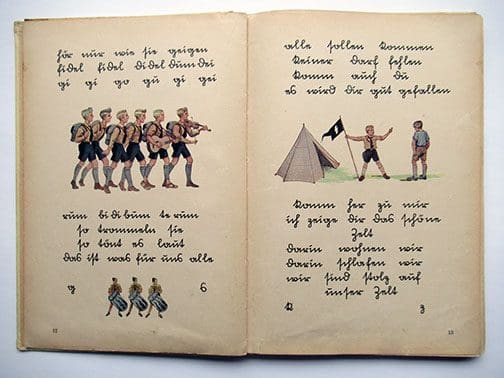 hör nur wie sie geigen
fidel fidel didel dum dei
gi gi go gu gi gei
rum bidibum terum
so trommeln sie
so tönt es laut
das ist was für uns alle
g s
12
alle sollen kommen
keiner darf fehlen
komm auch du
es wird dir gut gefallen
komm her zu mir
ich zeige dir das schöne
Zelt
darin wohnen wir
darin schlafen wir
wir sind stolz auf
unser Zelt
k z
13